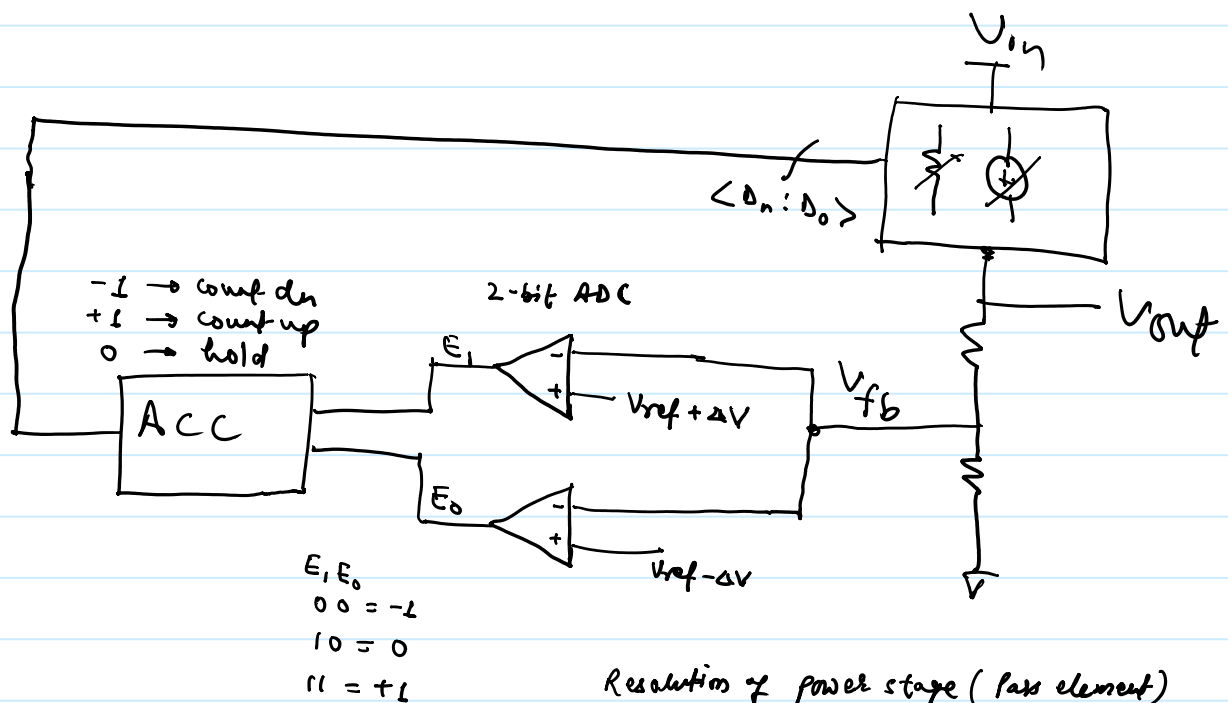 Vin
<Dn : D0>
-1 → count dn
+1 → count up
0 → hold
2-bit ADC
Vout
E1
-
+
Vref + ΔV
Vfb
ACC
E0
-
+
Vref - ΔV
E1 E0
00 = -1
10 = 0
11 = +1
Resolution of power stage ( Pass element)